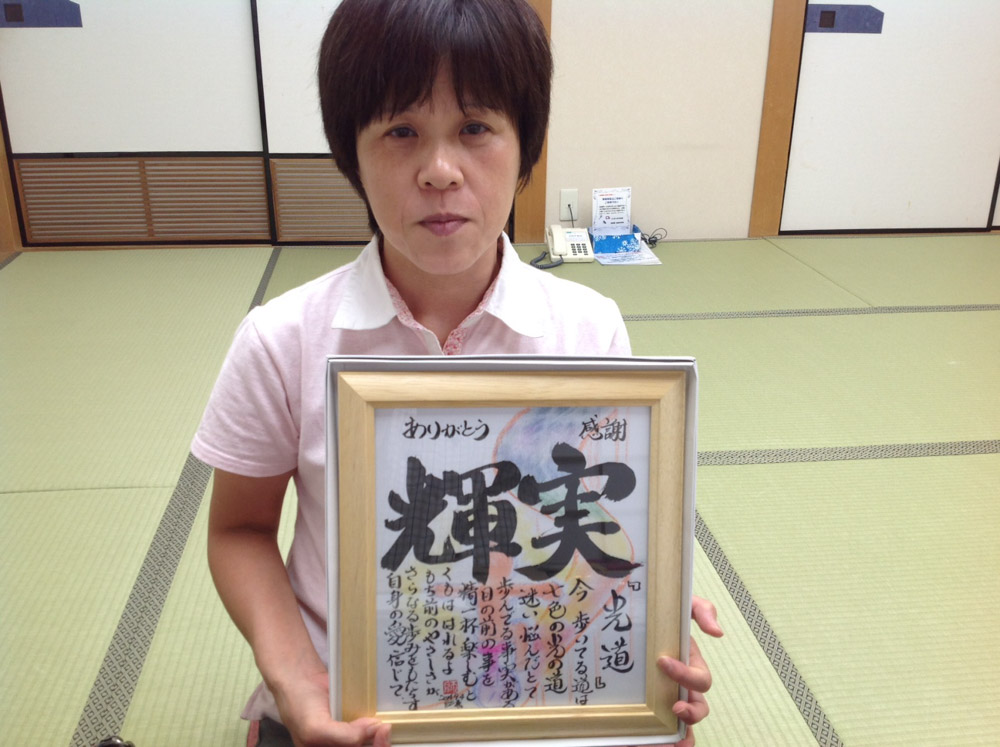 感謝
ありがとう
実輝
『光道』
今 歩いてる道は
七色の光の道
迷い悩んだとて
歩んでる事実
目の前の事を
精一杯楽しむと
くもははれるよ
もち前のやさしさが
さらなる歩みをもたらす
自身の愛信じて